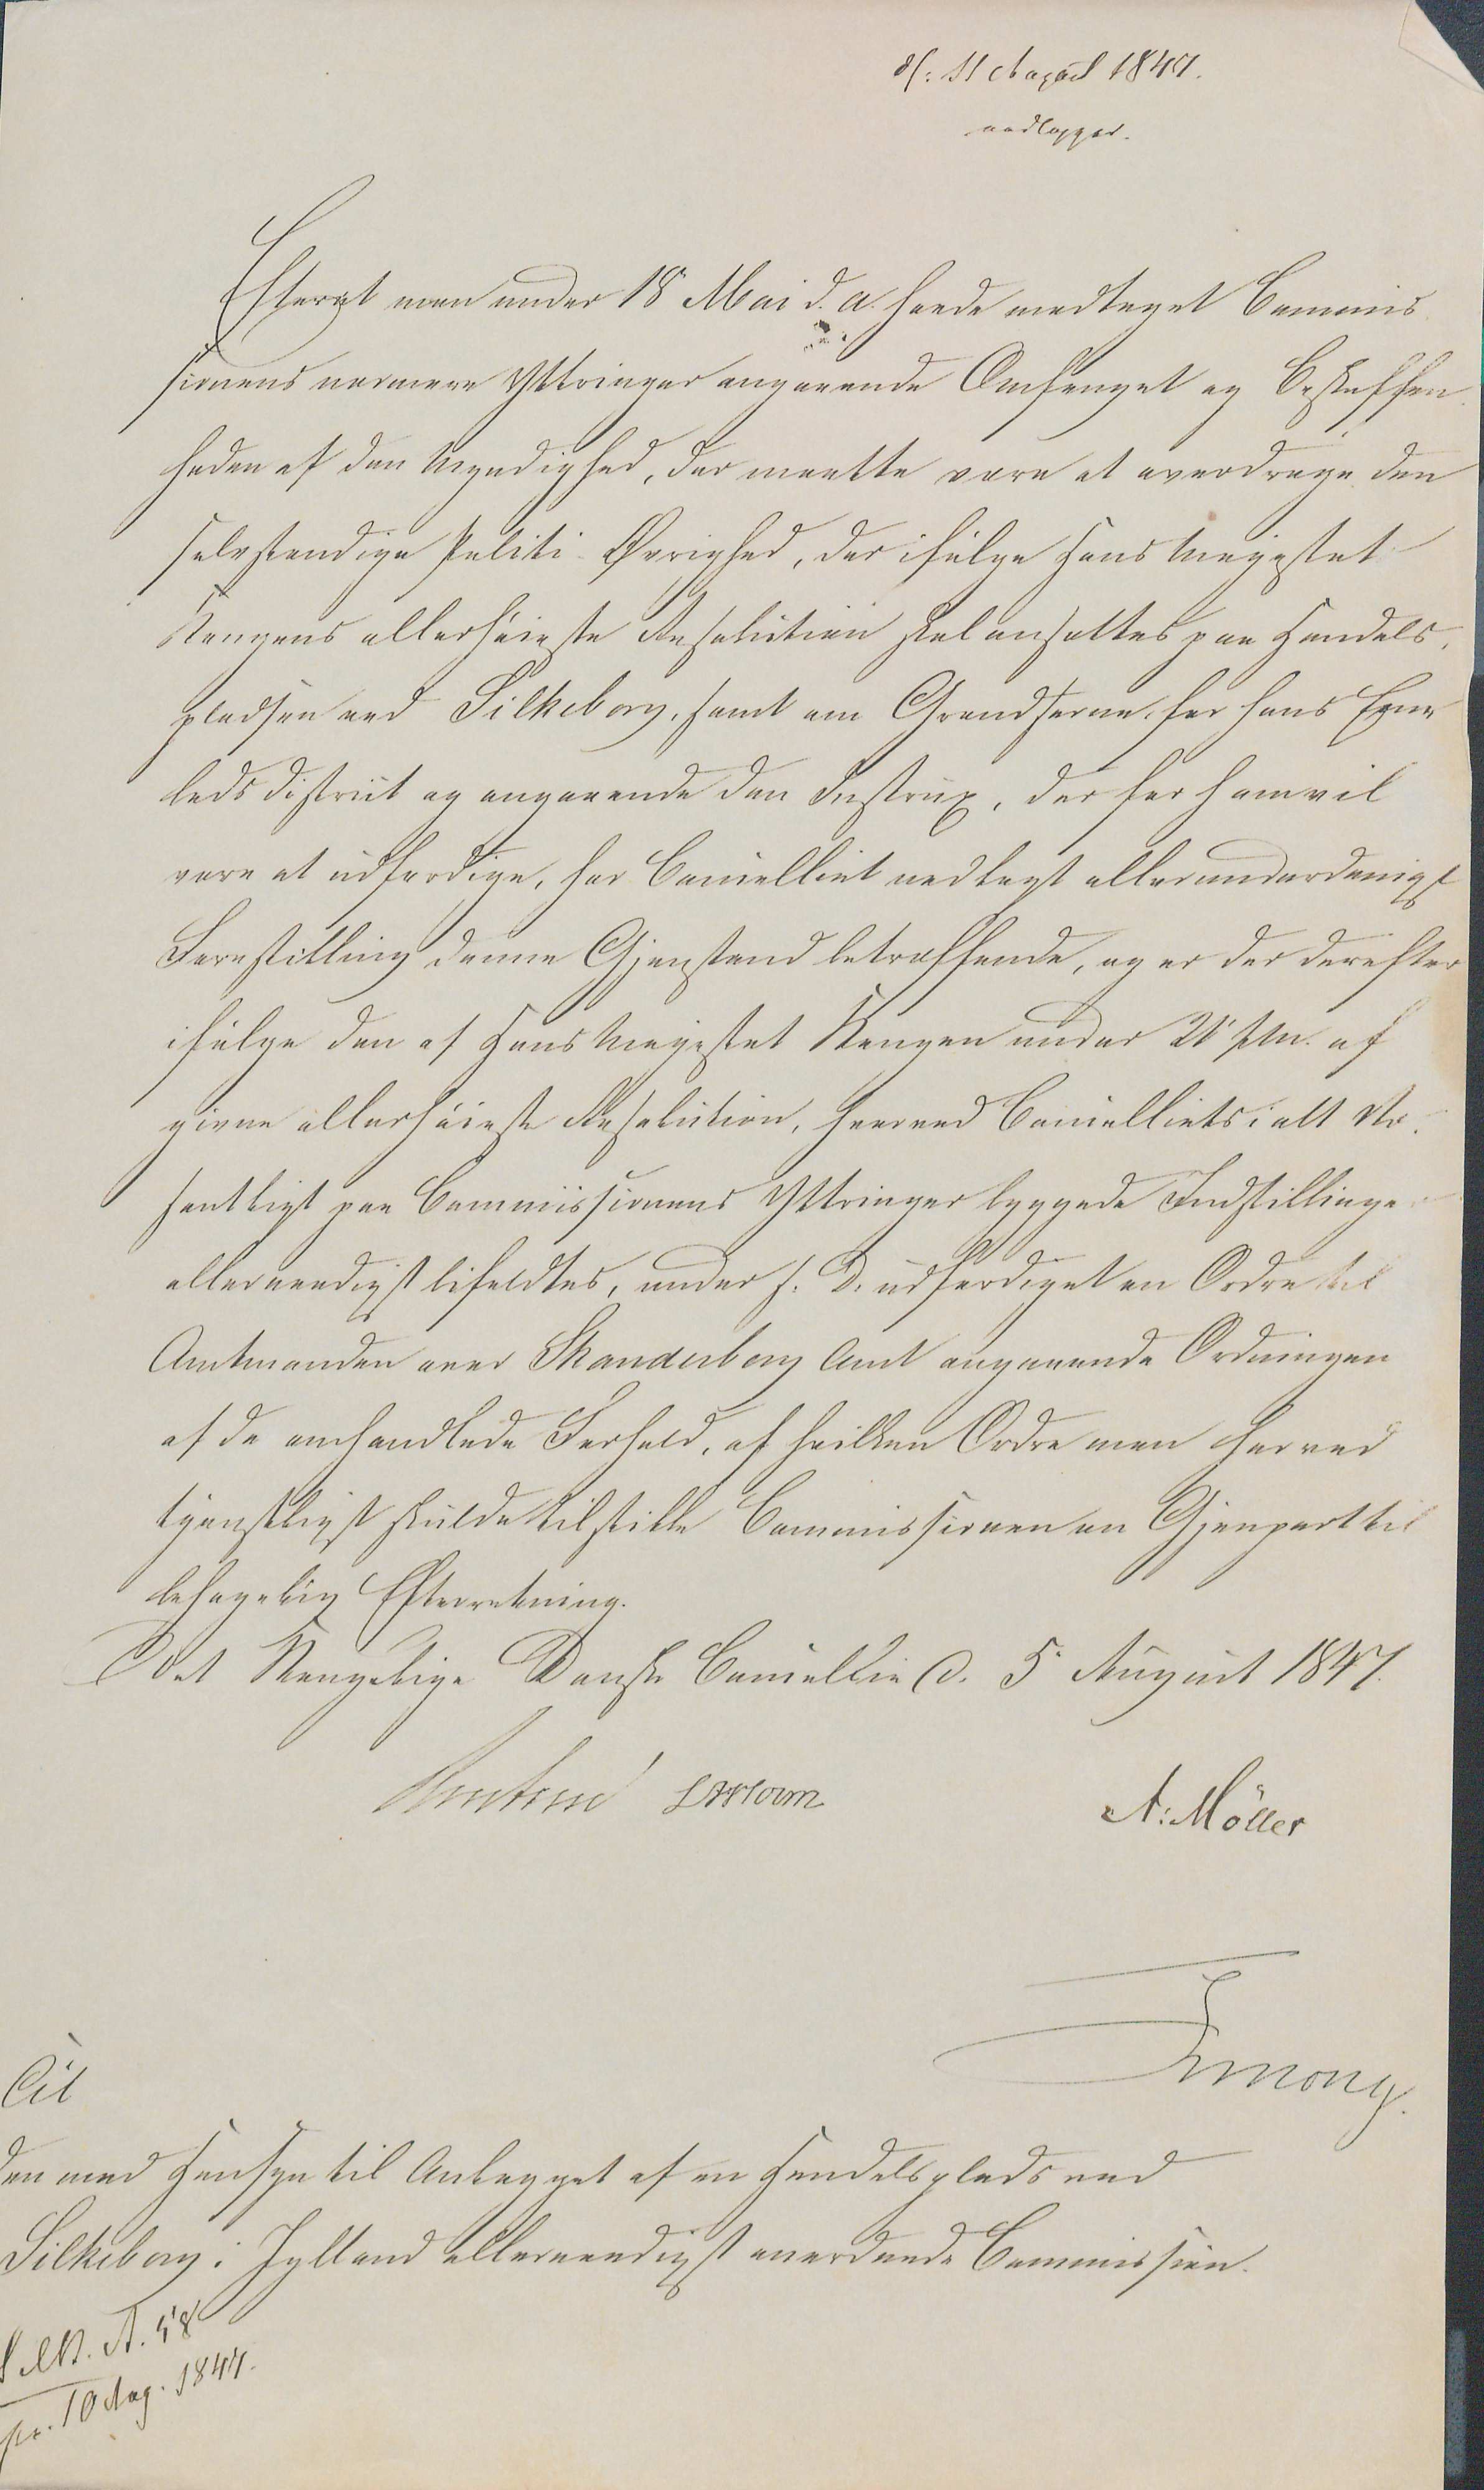 11 August 1847.
nedlægges.
Efterat man under 18 Mai d. A. havde modtaget Commis
sionens nærmere Yttringer angaaende Omfanget og Beskaffen
heden af den Myndighed, der maatte være at overdrage den
selvstændige Politi-Øvrighed, der ifølge Hans Majestæt
Kongens allerhöieste Resolution skal ansættes paa Handels
pladsen ved Silkeborg, samt om Grændserne for hans Embe
leds district og angaaende den Instrux, der for ham vil
være at udfærdige, har Cancelliet nedlagt allerunderdanigst
Forestilling denne Gjenstand betræffende, og er der derefter
ifølge den af Hans Majestæt Kongen under 21 f. M. af
givne allerhöieste Resolution, hvorved Cancelliets i alt Væ
sentligt paa Commissionens Yttringer byggede Indstillinger
allernaadigst bifaldtes, under s. D. udfærdiget en Ordre til
Amtmanden over Skanderborg Amt angaaende Ordningen
af de omhandlede Forhold, af hvilken Ordre man herved
tjenstligst skulde tilstille Commissionen en Gjenpart til
behagelig Efterretning.
Det Kongelige Danske Cancellie d. 5 August 1847.
A. Möller
Til
den med Hensyn til Anlægget af en Handelsplads ved
Silkeborg i Jylland allernaadigst anordnede Commission.
A. 58
pr. 10 Aug. 1847.